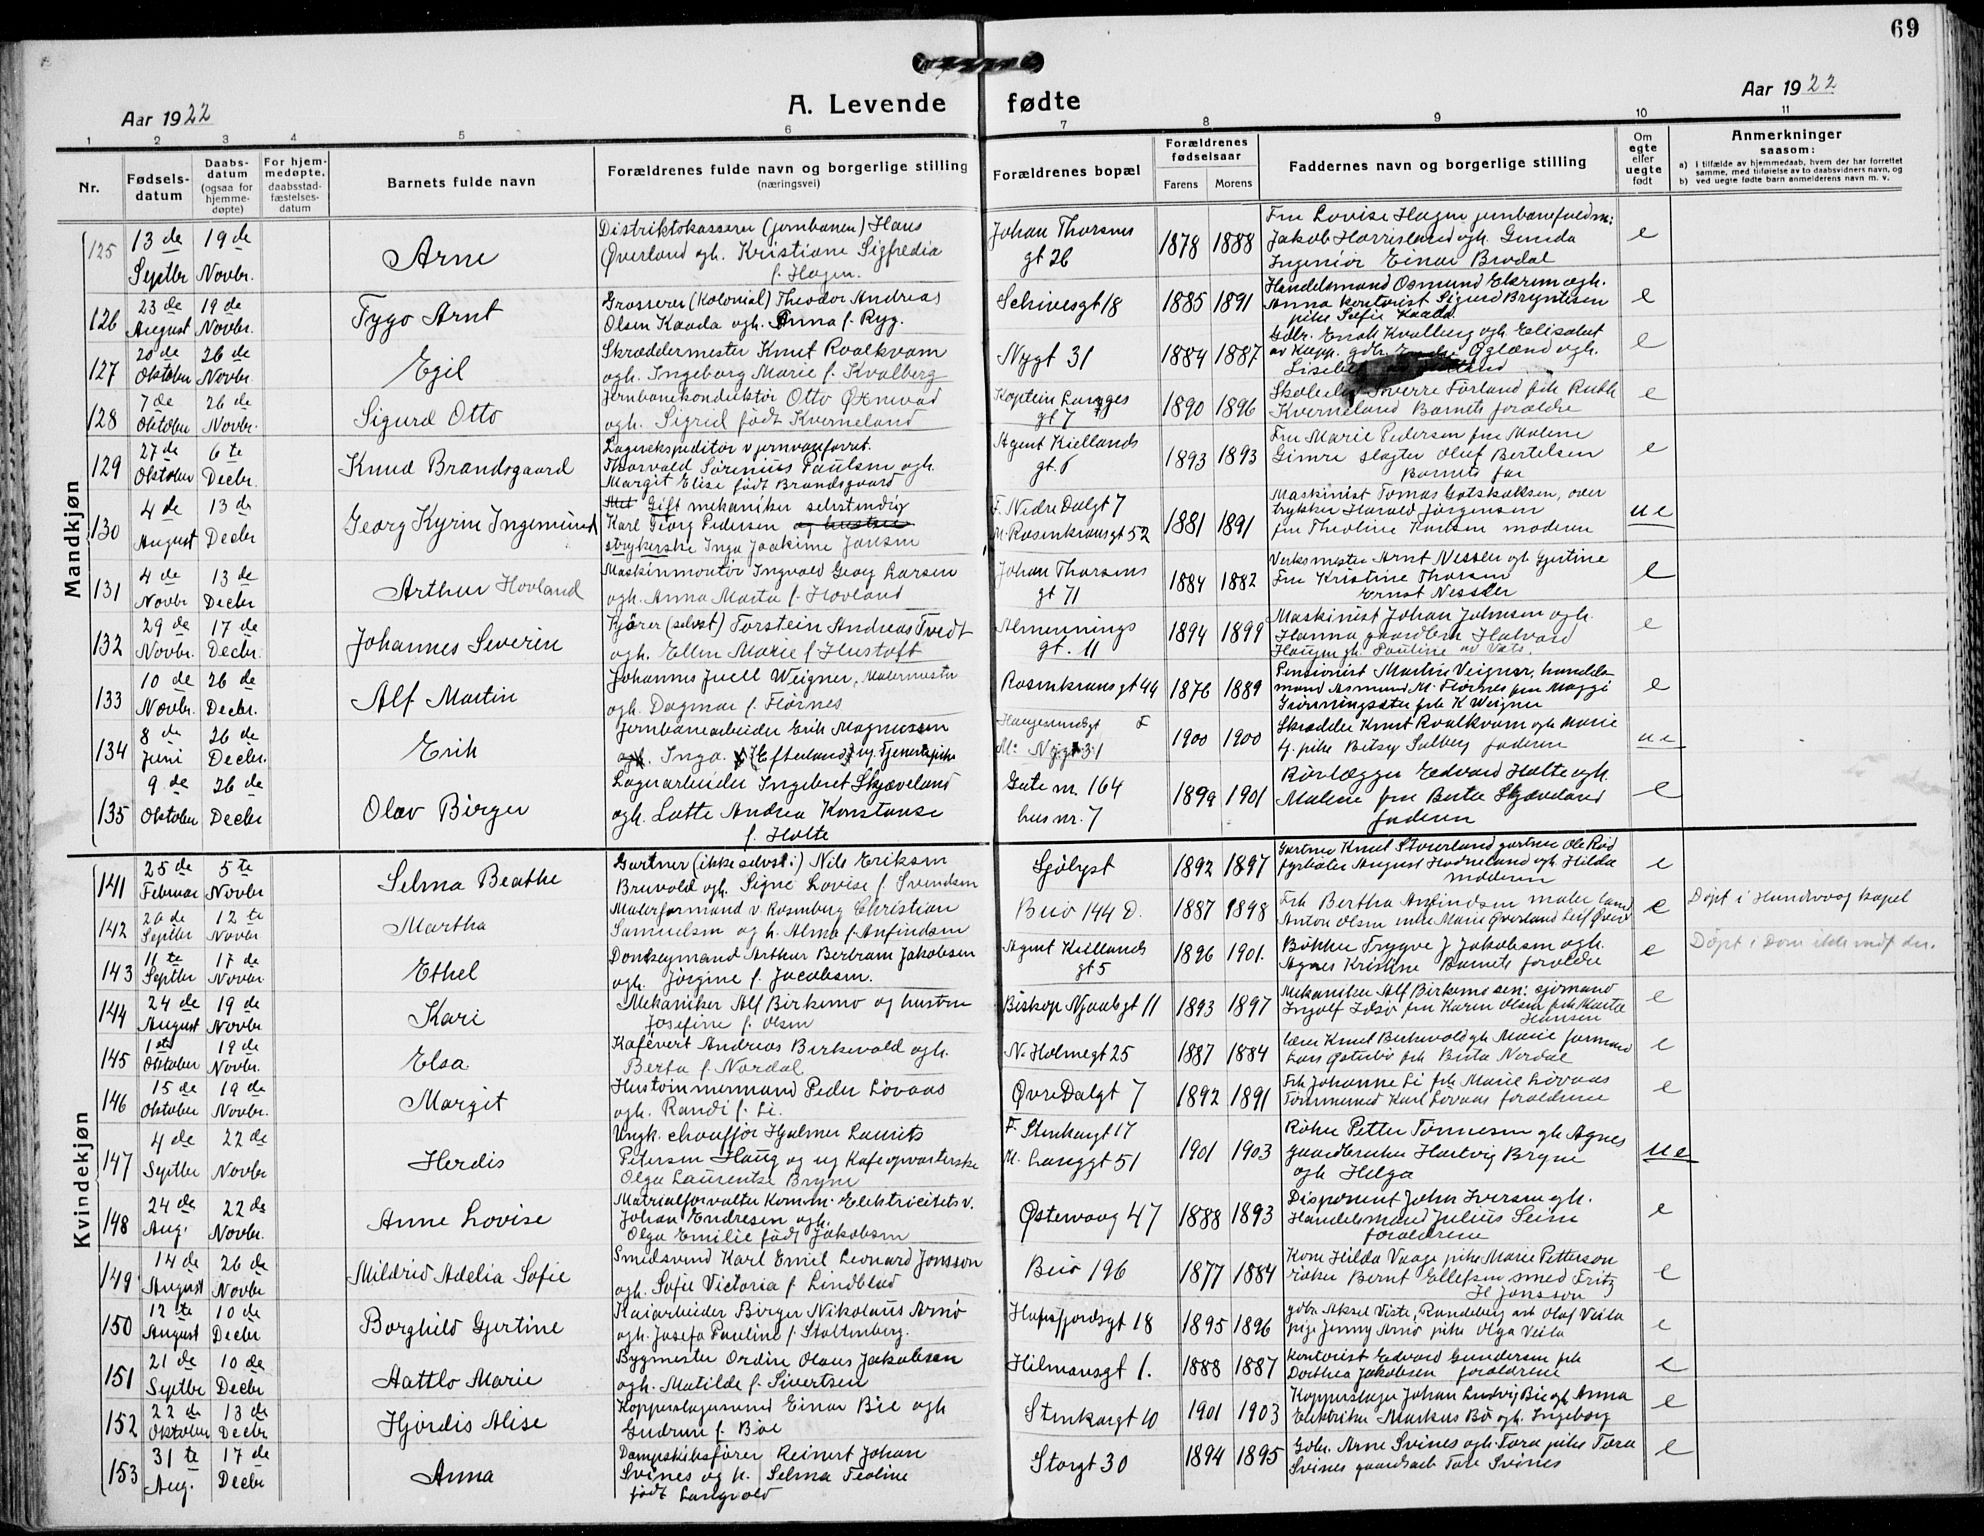 69
Aar 1922
A. Levende fødte
Aar 1922
1 2 3 4 5 6 7 8 9 10 11
Nr.
Fødsels-
datum
Daabs-
datum
(ogsaa for
hjemme-
døpte)
For hjem-
medøpte,
daabsstad-
fæstelses-
datum
Barnets fulde navn
Forældrenes fulde navn og borgerlige stilling
(næringsvei)
Forældrenes bopæl
Forældrenes
fødselsaar
Farens Morens
Faddernes navn og borgerlige stilling
Om
egte
eller
uegte
født
Anmerkninger
saasom:
a) i tilfælde av hjemmedaab, hvem der har forrettet
samme, med tilføielse av to daabsvidners navn, og
b) ved uegte fødte barn anmelderens navn m. v.
Mandkjøn
125 13de Septbr 19de Novbr. Arne
Distriktskasserer (jernbanen) Hans
Øverland og h. Kristiane Sigfredia
f. Hagen.
Johan Thorsens
gt 26
1878 1888
Fru Lovise Hagen jernbanefuldm:
Jakob Harrisland og h. Gunda
Ingeniør Einar Brodal
e
126 23de August 19de Novbr. Tygo Arnt
Grosserer (Kolonial) Theodor Andreas
Olsen Kaada og h. Anna f. Ryg.
Schivesgt 18
1885 1891
Handelsmand Osmund Ekrem og h.
Anna kontorist Sigurd Bryntesen
pike Sofie Kaada
e
127 20de Oktober 26de Novbr. Egil
Skræddermester Knut Roalkvam
og h. Ingeborg Marie f. Kvalberg
Nygt 31
1884 1887
Gdbr. Enok Kvalberg og h. Elisabet
av Klepp. gdbr. Øglænd og h.
e
128 7de Oktober 26de Novbr. Sigurd Otto
Jernbanekonduktør Otto Ømvad
og h. Sigrid født Kverneland
Kaptein Langes
gt 7
1890 1896
Sverre Førland frk Ruth
Kverneland Barnets forældre
e
129 27de Oktober 6te Decbr. Knud Brandsgaard
Lagerekspeditør v jernvareforret.
Thorvald Sørenius Paulsen og h.
Margit Elise født Brandsgaard
Agent Kiellands
gt. 6
1893 1893
Fru Marie Pedersen fru Malene
Gimre slagter Oluf Bertelsen
Barnets far
e
130 4de August 13de Decbr Georg Kyrin Ingemund
Gift mekaniker selvstendig
Karl Georg Pedersen og hustru
strykerske Inga Joakime Jansen
F. Nedre Dalgt 7
M. Rosenkransgt 52
1881 1891
Maskinist Tomas Gotskalksen, over
trykker Harald Jørgensen
fru Theoline Hansen moderen
ue
131 4de Novbr 13de Decbr Arthur Hovland
Maskinmontør Ingvald Georg Larsen
og h. Anna Marta f. Hovland
Johan Thorsens
gt 71
1884 1882
Verksmester Arnt Nessler og h Gjertine
Fru Kristine Thorsen
Ernst Nessler
e
132 29de Novbr. 17de Decbr. Johannes Severin
Kjører (selvst) Torstein Andreas Tvedt
og h. Ellen Marie f Hustoft
Almennings
gt. 11
1894 1899
Maskinist Johan Johnsen og h.
Hanna gaardbru Halvard
Haugen og h. Pauline av Vats.
e
133 10de Novbr. 26de Decbr. Alf Martin
Johannes Juell Weigner, Malermester
og h. Dagmar f. Flørnes
Rosenkransgt 44
1876 1889
Pensionist Martin Veigner, handels
mand Asmund M. Flørnes fru Maggi
frk K Weigner
e
134 8de Juni 26de Decbr. Erik
Jernbanearbeider Erik Magnussen
og h. Inga Efterland ug Tjenestepike
Haugesundsgt F
M: Nygt 31
1900 1900
Skrædder Knut Roalkvam og h Marie
f. pike Betsy Solberg faderen
ue
135 9de Oktober 26de Decbr Olav Birger
Lagerarbeider Ingebret Skjæveland
og h. Lotte Andrea Konstanse
f. Holte
Gate nr. 164
hus nr. 7
1899 1901
Rørlægger Edvard Holte og h.
Malene fru Berta Skjæveland
faderen
e
Kvindekjøn
141 25de Februar 5te Novbr Selma Beathe
Gartner (ikke selvst:) Nils Eriksen
Bruvold og h. Signe Lovise f. Svendsen
Sjølyst
1892 1897
fyrbøter August Hodneland og h Hilda
moderen
e
142 20de Septbr 12te Novbr Martha
Malerformand v Rosenberg Christian
Samuelsen og h. Alma f. Anfindsen
Buø 144 D.
1887 1898
Frk Bertha Anfindsen maler
Anton Olsen enke Marie Øverland
e
Døpt i Hundvaag kapel
143 11te Septbr 17de Novbr Ethel
Donkeymand Arthur Bertram Jakobsen
og h. Jørgine f. Jacobsen.
Agent Kiellands
gt 5
1896 1901.
Bøkker Trygve J Jakobsen og h.
Agnes Kristine Barnets forældre
e
Døpt i Dom
144 24de August 19de Novbr Kari
Mekaniker Alf Birkemo og hustru
Josefine f. Olsen
Biskop Njaalsgt 11
1893 1897
Mekaniker Alf Birkemo sen: sjømand
Ingolf Idsø fru Karen Olsen frk Marta
Hansen
e
145 1ste Oktober 19de Novbr. Elsa
Kafévert Andreas Birkevold og h.
Berta f. Nordal
N. Holmegt 25
1887 1884
lærer Knut Birkevold og h Marie formand
Lars Østebø frk Berta Nordal
e
146 15de Oktober 19de Novbr. Margit
Hustømmermand Peder Lovaas
og h. Randi f. Li.
Øvre Dalgt 7
1892 1891
Frk Johanne Li frk Marie Lovaas
Tømmermd Karl Lovaas forældrene
e
147 4de Septbr 22de Novbr Herdis
Ungk. chauffør Hjalmar Laurits
Petersen Haug og ug Kafeopvarterske
Olga Laurentse Bryne
F. Stenhaugt 17
M. Langgt 51
1901 1903
Røker Petter Tønnesen og h Agnes
gaardbruker Hartvig Bryne
og h Helga
ue
148 24de Aug. 22de Novbr. Anne Lovise
Matrialforvalter Komm. Elektricitetsv.
Johan Endresen og h.
Olga Emilie født Jakobsen
Østervaag 47
1888 1893
Disponent John Iversen og h.
Handelsmand Julius Seim
forældrene
e
149 14de August 26de Novbr Mildrid Adelia Sofie
Smedsvend Karl Emil Leonard Jonsson
og h. Sofie Victoria f Lindblad
Buø 196
1877 1884
Kone Hilda Vaage pike Marie Petterson
røker Bernt Ellefsen smed Fritz
H Jonsson
e
150 12te August 10de Decbr Borghild Gjertine
Kaiarbeider Birger Nikolaus Arnø
og h. Josefa Pauline f. Stoltenberg.
Hafrsfjordsgt 18
1895 1896
gdbr Aksel Viste, Randeberg arb Oluf Veila
pige Jenny Arnø pike Olga Veila
e
151 21de Septbr 10de Decbr Aattlo Marie
Bygmester Ordin Olaus Jakobsen
og h. Matilde f. Sivertsen
Hilmansgt 1.
1888 1887
Kontorist Edvard Gundersen frk
Dorthea Jakobsen forældrene
e
152 22de Oktober 13de Decbr Hjørdis Alise
Kopperslagersvend Einar Bie og h
Gudrun f. Bøe
Stenkargt 10
1901 1903
Kopperslager Johan Ludvig Bie og h Anna
Elektriker Markus Bø og h. Ingeborg
e
153 31te Aug. 17de Decbr Anna
Dampskibsfører Reinert Johan
Svines og h. Selma Teoline
født Langvald
Storgt 30
1894 1895
Gdbr. Arne Svines og h. Tora pike Tora
Svines gaardsarb Tore Svines
e